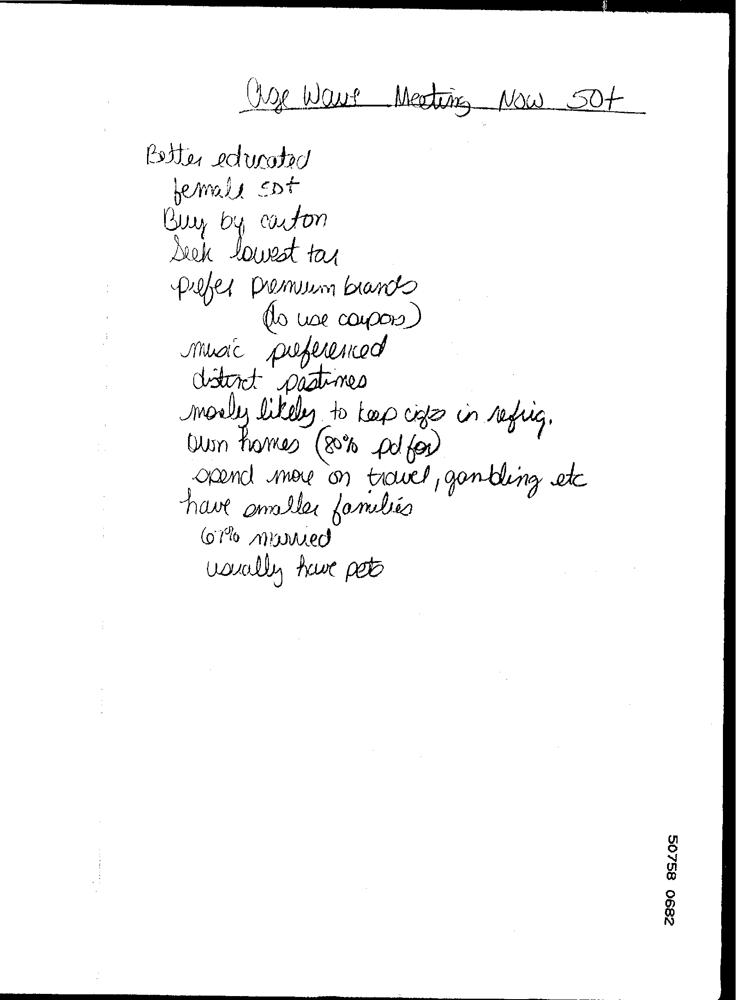 Age Wave Meeting Now 50+
Better educated
female 50+
Buy by carton
Seek lowest tar
prefer premium brands
(do use coupons)
music preferenced
distinct pastimes
likely to keep cigs in refrig.
own homes (80% pd for)
spend more on travel, gambling etc
have smaller families
67% married
usually have pets
50758 0682